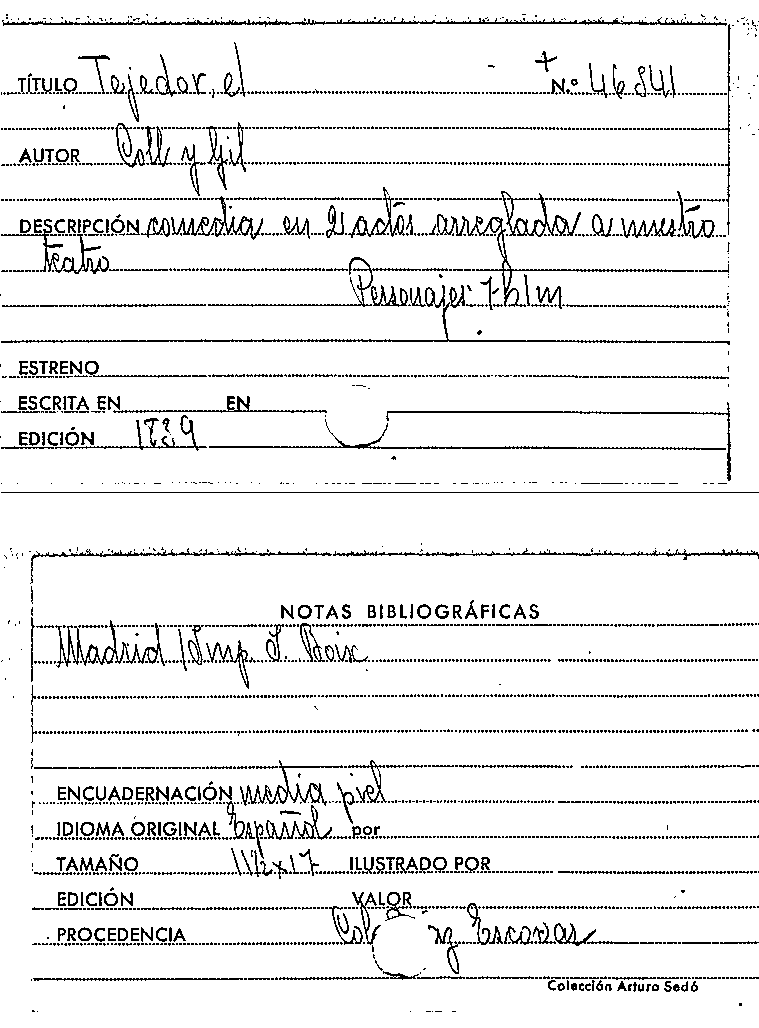 TÍTULO Tejedor, el + N.º 46841
AUTOR Coll y Gil
DESCRIPCIÓN comedia en 2 actos arreglada a nuestro
teatro
Personajes: 7 h 1 m
ESTRENO
ESCRITA EN EN
EDICIÓN 1839
NOTAS BIBLIOGRÁFICAS
Madrid / Imp I. Boix
ENCUADERNACIÓN media piel
IDIOMA ORIGINAL Español por
TAMAÑO 11½x17 ILUSTRADO POR
EDICIÓN VALOR
PROCEDENCIA Escovar
Colección Arturo Sedó